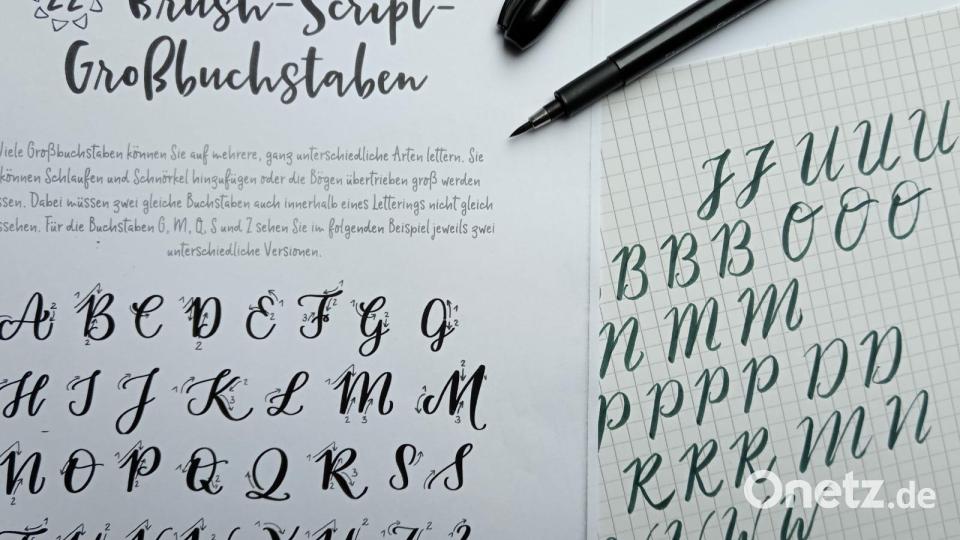 22 Brush-Script-
Großbuchstaben
Viele Großbuchstaben können Sie auf mehrere, ganz unterschiedliche Arten lettern. Sie
können Schlaufen und Schnörkel hinzufügen oder die Bögen übertrieben groß werden
ssen. Dabei müssen zwei gleiche Buchstaben auch innerhalb eines Letterings nicht gleich
ssehen. Für die Buchstaben G, M, Q, S und Z sehen Sie im folgenden Beispiel jeweils zwei
unterschiedliche Versionen.
A B C D E F G G
H I J K L M M
N O P Q Q R S S
J J U U U
B B B O O O
N M M
P P P P D D
R R R M N
Onetz.de